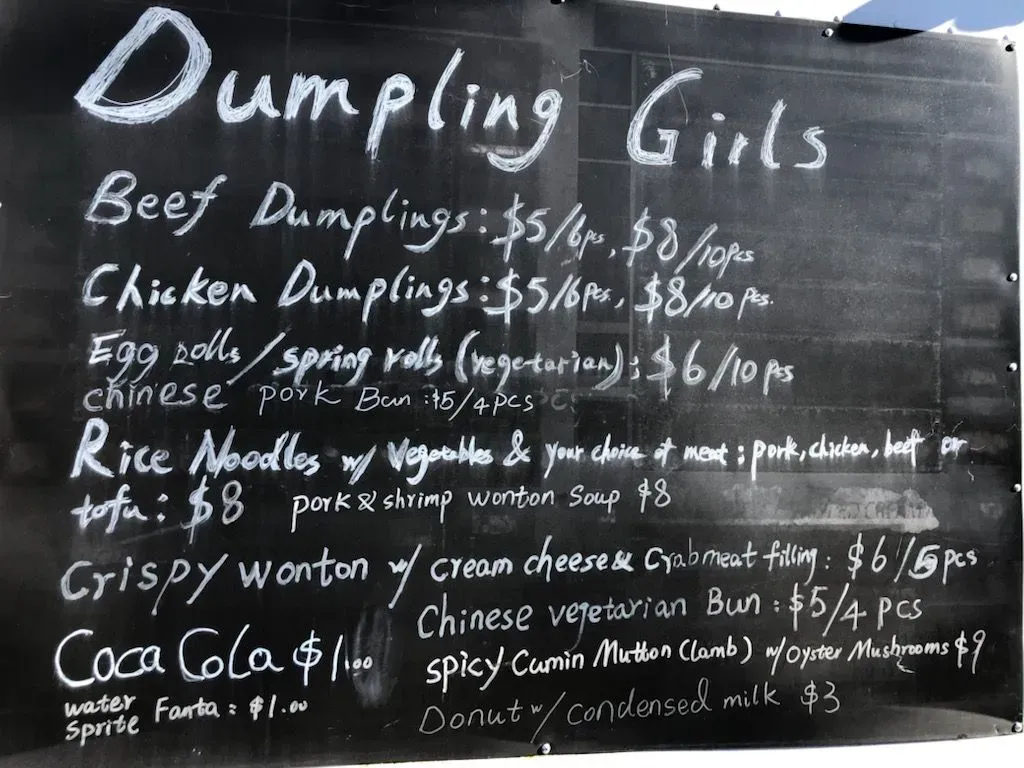 Dumpling Girls
Beef Dumplings: $5/6pcs, $8/10pcs
Chicken Dumplings: $5/6pcs, $8/10 pcs.
Egg rolls/spring rolls (vegetarian): $6/10 pcs
chinese pork Bun: $5/4 pcs
Rice Noodles w/ Vegetables & your choice of meat: pork, chicken, beef or
tofu: $8 pork & shrimp wonton Soup $8
Crispy wonton w/ cream cheese & Crabmeat filling: $6/5 pcs
Chinese vegetarian Bun: $5/4 pcs
Coca Cola $1.00
spicy Cumin Mutton (lamb) w/ Oyster Mushrooms $9
water
Sprite Fanta: $1.00
Donut w/ condensed milk $3